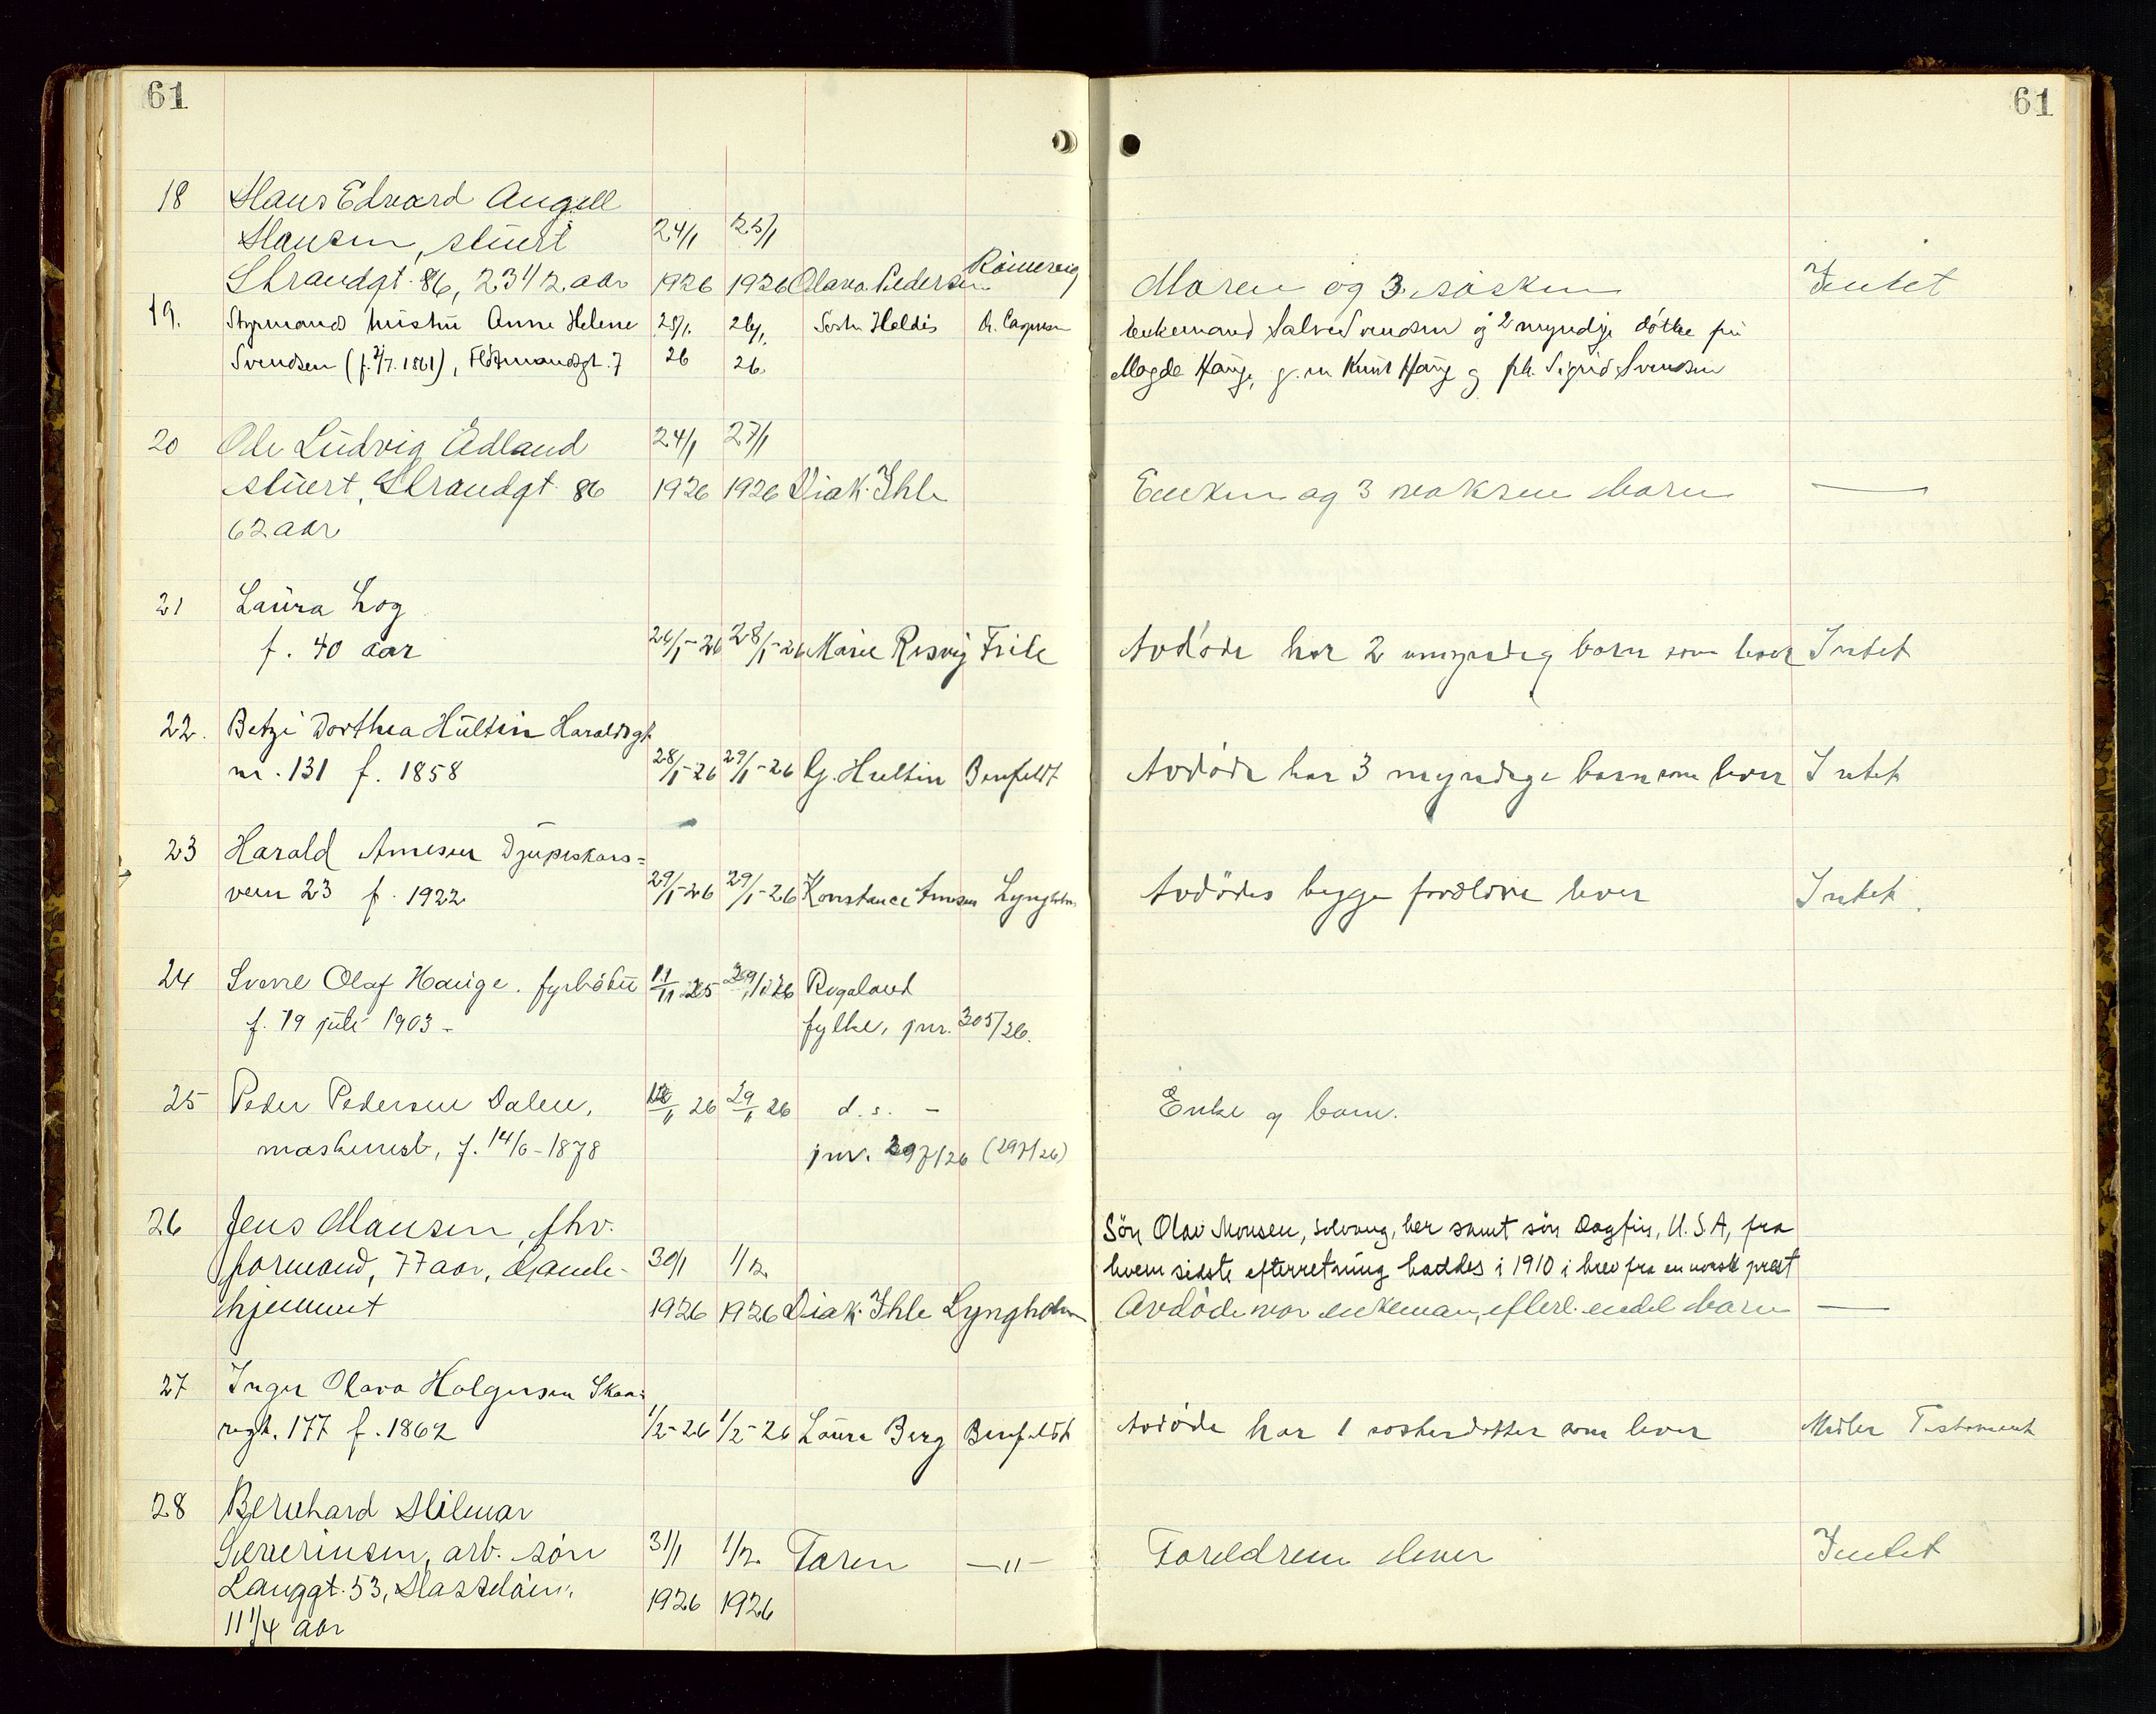 61
61
18 Hans Edvard Angell
Hansen, stuert 24/1 25/1
Strandgt. 86, 23 1/2 aar 1926 1926 Olava Pedersen Römervig Moren og 3 søsken Intet
19. Styrmands hustru Anne Helene 25/1. 26/1. Søster Heldis A. Caspersen Enkemand Salve Svendsen og 2 myndige døttre fru
Svendsen (f. 2/7. 1861), Flötmandsgt. 7 26 26. Magda Hauge, g. m Knut Hauge og frk. Sigrid Svendsen
20 Ole Ludvig Ådland 24/1 27/1
stuert, Strandgt. 86 1926 1926 Diak. Ihle Enken og 3 voksne barn —
62 aar
21 Laura Log
f. 40 aar 26/1-26 28/1-26 Marie Risvig Frile Avdøde har 2 umyndig barn som lever Intet
22. Betzi Dorthea Hultin Haraldsgt
nr. 131 f. 1858 28/1-26 29/1-26 G. Hultin Benfeldt Avdøde har 3 myndige barn som lever Intet
23 Harald Arnesen Djupeskars=
veien 23 f. 1922 29/1-26 29/1-26 Konstance Arnesen Lyngholm Avdödes begge forældre lever Intet.
24 Sverre Olaf Hauge. fyrböter 11/11 25 29/1 26 Rogaland
f. 19 juli 1903 - fylke, jnr. 305/26.
25 Peder Pedersen Dalen, 26 29/1 26 d. s. - Enke og barn.
maskinist, f. 14/6-1878 jnr. 297/26 (297/26)
26 Jens Monsen, fhv. Sön Olav Monsen, Solvang, her samt sön Dagfin, U.S.A, fra
formand, 77 aar, Gamle- 30/1 1/2. hvem sidste efterretning haddes i 1910 i brev fra en norsk prest
hjemmet 1926 1926 Diak. Ihle Lyngholm Avdøde var enkeman, efterl. endel barn —
27 Inger Olava Holgersen Skaa=
regt. 177 f. 1862 1/2-26 1/2-26 Laura Berg Benfeldt Avdøde har 1 søsterdatter som lever Midler Testament
28 Bernhard Hilmar
Severinsen, arb. søn 31/1 1/2. Faren —"— Foreldrene lever Intet
Langgt. 53, Hasseløen. 1926 1926
11 1/4 aar